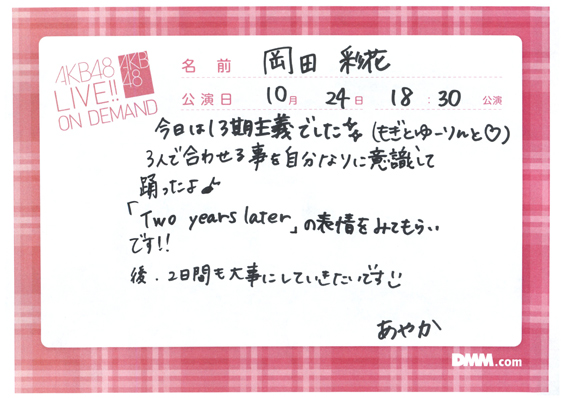 AKB48
LIVE!!
ON DEMAND
AKB
48
名前 岡田 彩花
公演日 10月 24日 18:30 公演
今日は13期主義でしたな(もぎとゆーりんと♡)
3人で合わせる事を自分なりに意識して
踊ったよ♪
「Two years later」の表情をみてもらい
です!!
後.2日間も大事にしていきたいです
あやか
DMM.com